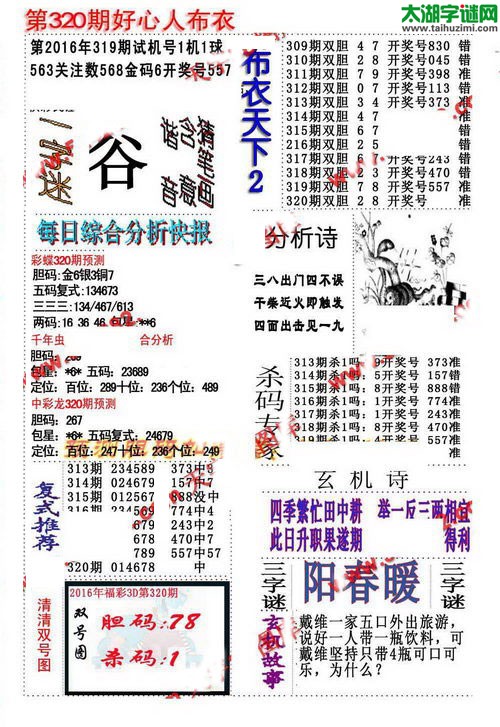 第320期好心人布衣
太湖字谜网
www.taihuzimi.com
第2016年319期试机号1机1球
563关注数568金码6开奖号557
谷
每日综合分析快报
彩蝶320期预测
胆码:金6银3铜7
五码复式:134673
三三三:134/467/613
两码:16 36 46 包星 **6
千年虫 合分析
胆码:
包星: *6* 五码: 23689
定位: 百位: 289十位: 236个位: 489
中彩龙320期预测
胆码: 267
包星: *6* 五码复式: 24679
定位: 百位: 247十位: 236个位: 249
复式推荐
313期 234589 373中
314期 024679 157中7
315期 012567 888没中
316期 774中4
679 243中2
678 470中7
789 557中57
320期 014678
清清双号图
2016年福彩3D第320期
双号图
胆码:78
杀码:1
布衣天下2
309期双胆 4 7 开奖号830 错
310期双胆 2 8 开奖号045 错
311期双胆 7 9 开奖号398 准
312期双胆 0 7 开奖号113 错
313期双胆 3 4 开奖号373 准
314期双胆 47
315期双胆 67 错
216期双胆 25 错
317期双胆 6 开奖号243 错
318期双胆 开奖号470 准
319期双胆 7 8 开奖号557 准
320期双胆 2 8 开奖号
分析诗
三八出门四不误
干柴近火即触发
四面出击见一九
杀码专家
313期杀1吗: 9开奖号 373准
314期杀1吗: 开奖号 157错
315期杀1吗: 8开奖号 888错
316期杀1吗: 1开奖号 774准
317期杀1吗: 4开奖号 243错
318期杀1吗: 8开奖号 470准
319期杀1吗: 开奖号 557错
玄机诗
四季繁忙田中耕 举一反三两相宜
此日升职果遂期 得利
三字谜
阳春暖
三字谜
玄机故事
戴维一家五口外出旅游，
说好一人带一瓶饮料，可
戴维坚持只带4瓶可口可
乐，为什么？